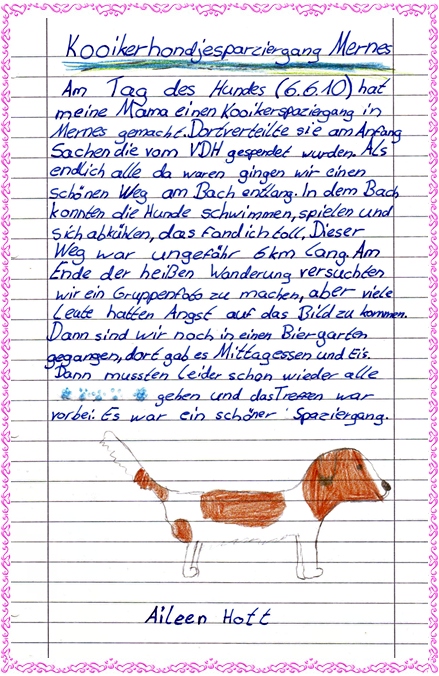 Kooikerhondjesparziergang Mernes
Am Tag des Hundes (6.6.10) hat
meine Mama einen Kooikerspaziergang in
Mernes gemacht. Dort verteilte sie am Anfang
Sachen die vom VDH gespendet wurden. Als
endlich alle da waren gingen wir einen
schönen Weg am Bach entlang. In dem Bach
konnten die Hunde schwimmen, spielen und
sich abkühlen, das fand ich toll. Dieser
Weg war ungefähr 6km lang. Am
Ende der heißen Wanderung versuchten
wir ein Gruppenfoto zu machen, aber viele
Leute hatten Angst auf das Bild zu kommen.
Dann sind wir noch in einen Biergarten
gegangen, dort gab es Mittagessen und Eis.
Dann mussten leider schon wieder alle
gehen und das Treffen war
vorbei. Es war ein schöner Spaziergang.
Aileen Hott